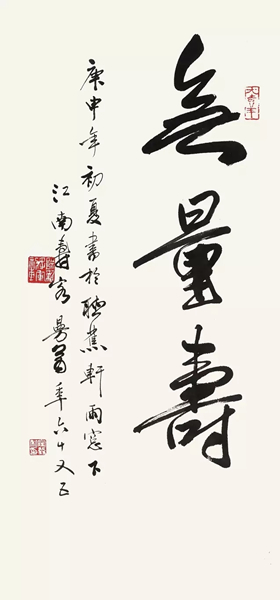 無量壽
庚申年初夏書於聽蕉軒雨窓下
江南壽客易翁年六十又五